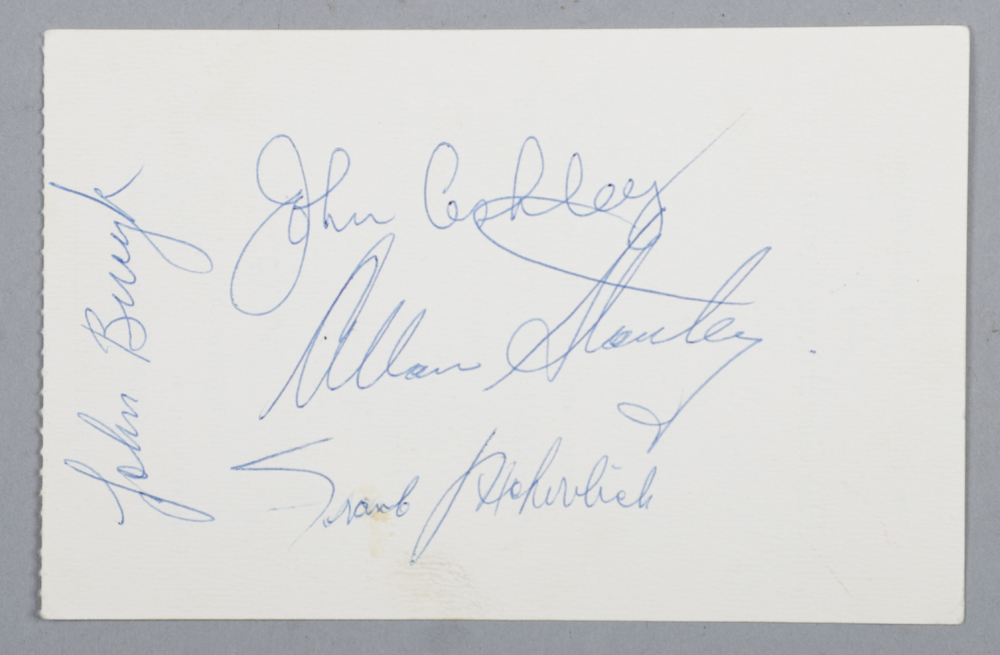 John Ashley
Allan Stanley
Frank Mahovlich
John Bucyk